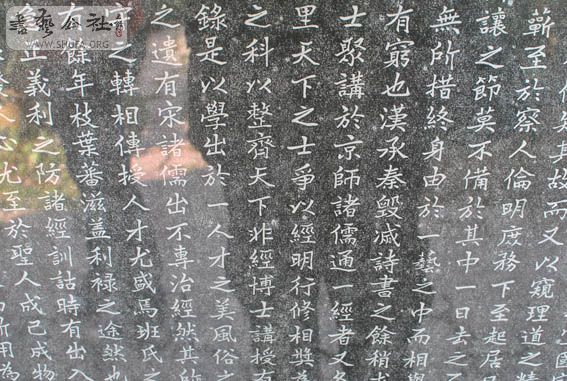 知其故而又以窺理道之精
蘄至於察人倫明庶務下至起居
讓之節莫不備於其中一日去之
無所措終身由於一藝之中而相與
有窮也漢承秦毀滅詩書之餘稍
士聚講於京師諸儒通一經者又
里天下之士爭以經明行修相獎
之科以整齊天下非經博士講授有
錄是以學出於一人才之美風俗之
之遺有宋諸儒出不專治經然其所
之轉相傳授人才尤盛焉班氏之
餘年枝葉蕃滋蓋利祿之途然也
正義利之防諸經訓詁時有出入
人心尤至於聖人成己成物
所用為
書藝公社
www.shufa.org